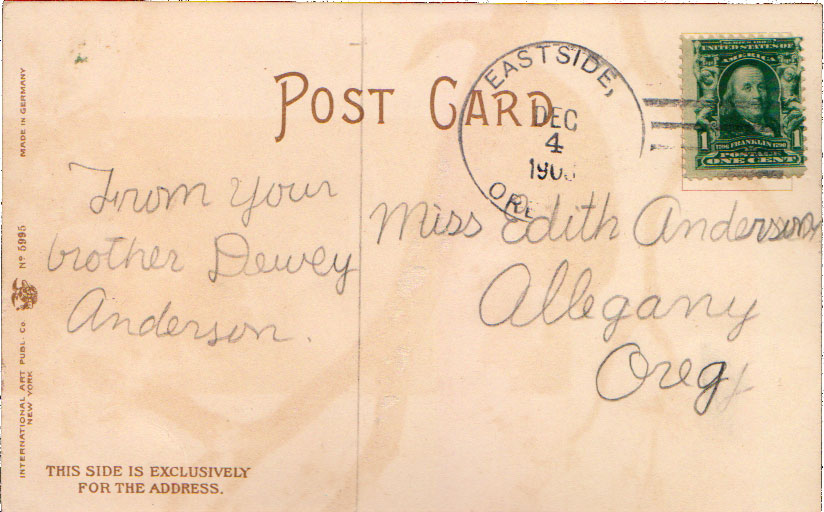 POST CARD
EASTSIDE,
DEC
4
ORE
UNITED STATES OF
AMERICA
1 1
1706 FRANKLIN 1790
POSTAGE
ONE CENT
From your
brother Dewey
Anderson.
Miss Edith Anderson
Allegany
Oreg
MADE IN GERMANY
No 5995
INTERNATIONAL ART PUBL. Co
NEW YORK
THIS SIDE IS EXCLUSIVELY
FOR THE ADDRESS.